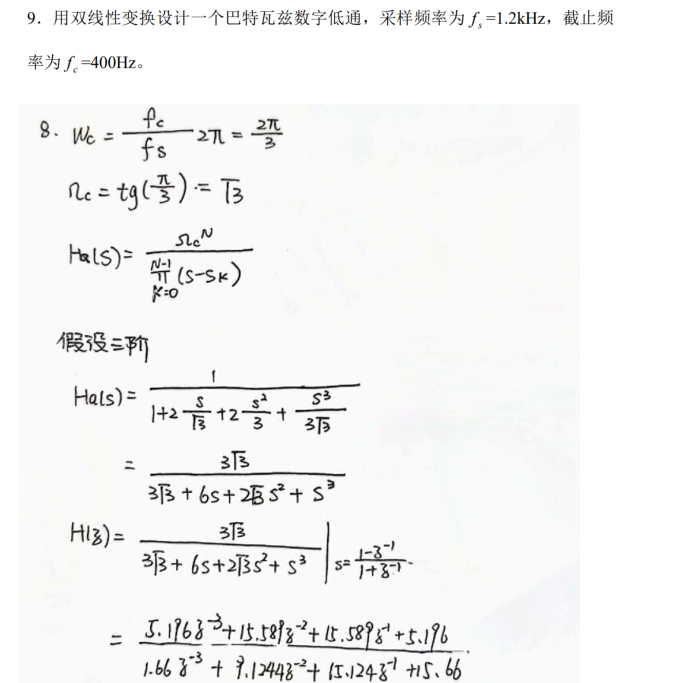 9. 用双线性变换设计一个巴特瓦兹数字低通，采样频率为 fs=1.2kHz，截止频
率为 fc=400Hz。
8. Wc = fc/fs 2π = 2π/3
Ωc = tg(π/3) = √3
Ha(s) = Ωc^N / ∏_{K=0}^{N-1} (s-sK)
假设三阶
Ha(s) = 1 / (1+2 s/√3 +2 s²/3 + s³/3√3)
= 3√3 / (3√3 + 6s + 2√3 s² + s³)
H(z) = 3√3 / (3√3 + 6s + 2√3 s² + s³) | s = (1-z⁻¹)/(1+z⁻¹)
= (5.196z⁻³ + 15.589z⁻² + 15.589z⁻¹ + 5.196) / (1.66z⁻³ + 9.1244z⁻² + 15.124z⁻¹ + 15.66)